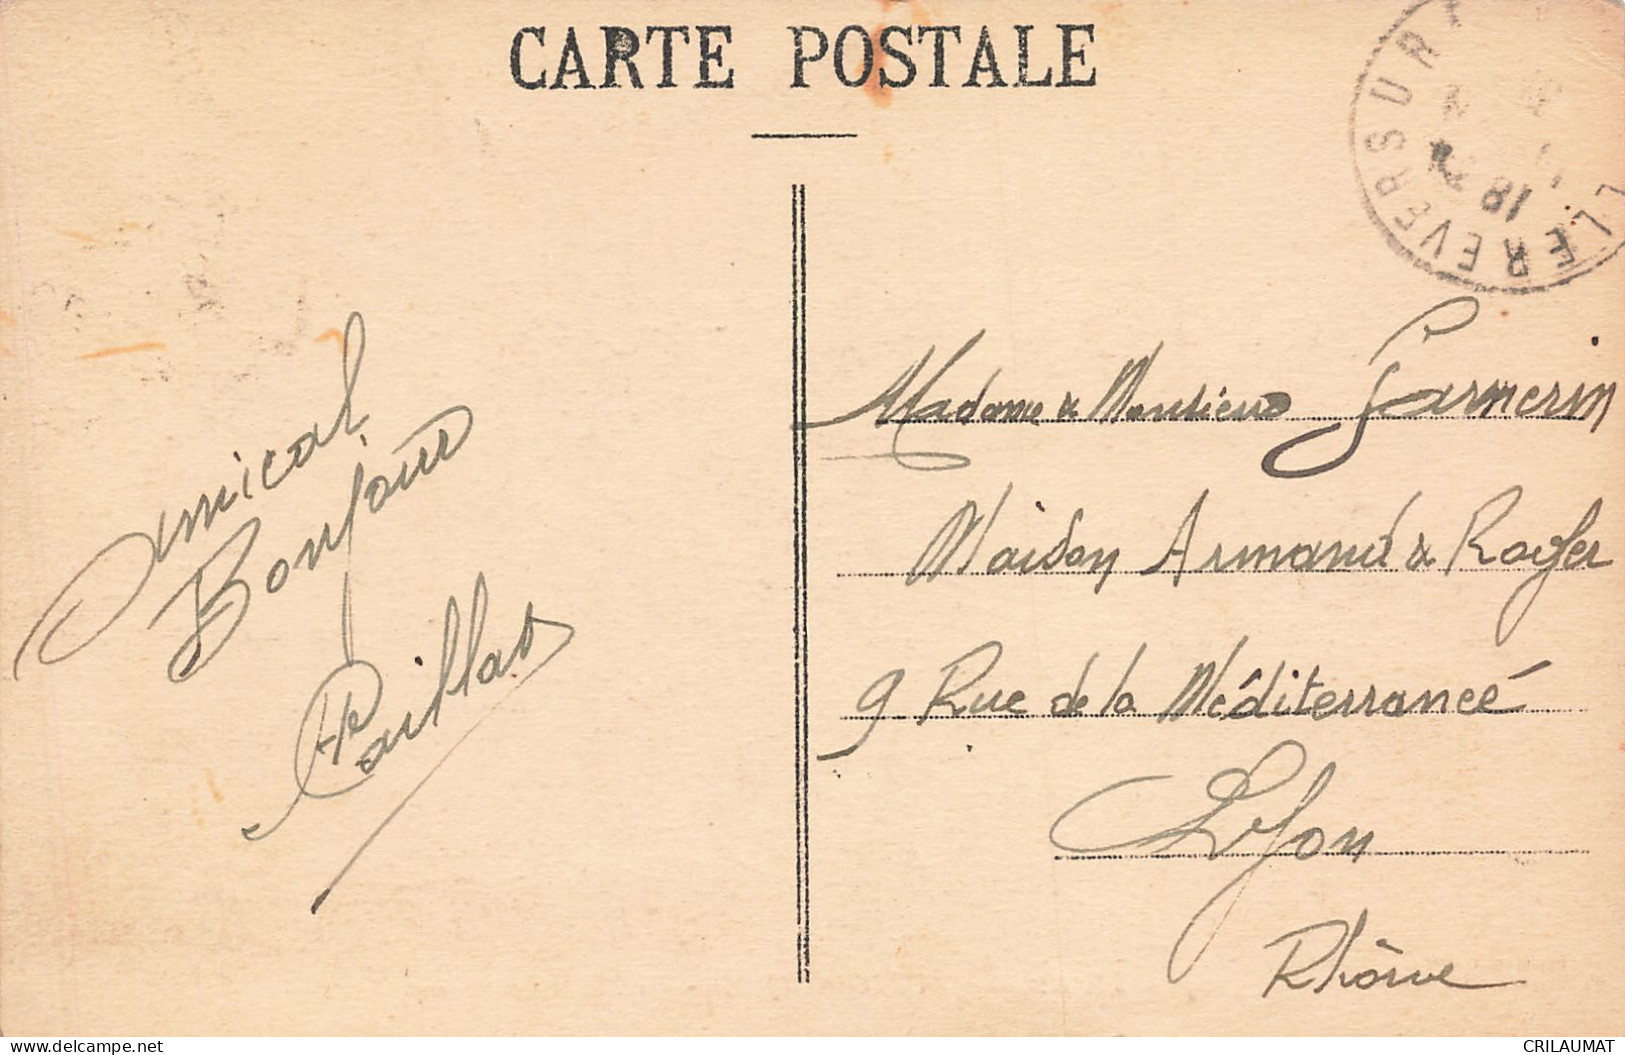 CARTE POSTALE
Amical
Bonjour
Caillat
Madame & Monsieur Garnerin
Maison Armand & Roger
9 Rue de la Méditerranée
Lyon
Rhône
18
delcampe.net
CRILAUMAT